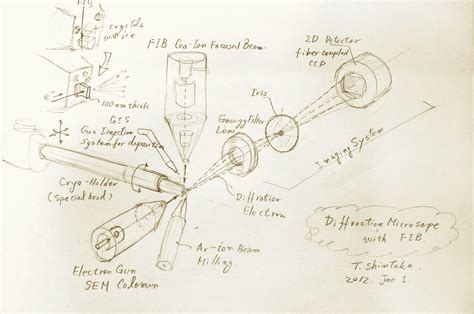 FIB
crystals
with ice
e-
100 nm thick
GIS
Gas Injection
system for deposition
FIB Ga-Ion Focused Beam
2D Detector
fiber coupled
CCD
Iris
Energy Filter
Lens
Imaging System
Cryo-Holder
(special head)
Diffration
Electron
Ar-ion Beam
Milling
Electron Gun
SEM Colomn
Diffraction Microscope
with FIB
T. Shintake
2012. 1.